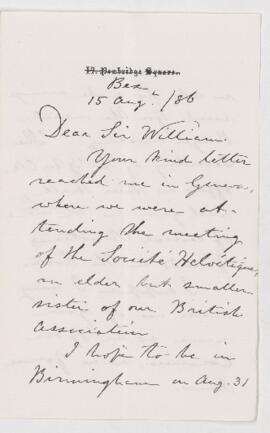 17, Pembridge Square.
Bex
15 Aug. /86
Dear Sir William.
Your kind letter
reached me in Geneva,
where we were at-
tending the meeting
of the Société Helvétique,
an elder but smaller
sister of our British
Association
I hope to be in
Birmingham on Aug. 31